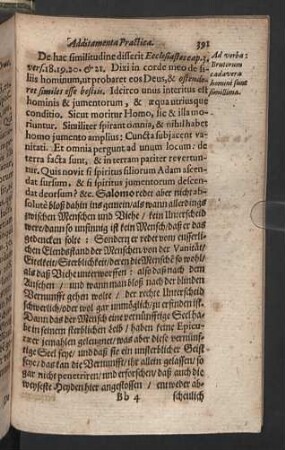 Additamenta Practica. 391
De hac similitudine disserit Ecclesiastes cap. 3.
vers. 18. 19. 20. & 21. Dixi in corde meo de fi-
liis hominum, ut probaret eos Deus, & ostende-
ret similes esse bestiis. Idcirco unus interitus est
hominis & jumentorum, & æqua utriusque
conditio. Sicut moritur Homo, sic & illa mo-
riuntur. Similiter spirant omnia, & nihil habet
homo jumento amplius: Cuncta subjacent vani-
tati. Et omnia pergunt ad unum locum: de
terra facta sunt, & in terram pariter revertun-
tur. Quis novit si spiritus filiorum Adam ascen-
dat sursum, & si spiritus jumentorum descen-
dat deorsum? &c. Salomo redet aber nicht ab-
solutè bloß dahin ins gemein / als wann allerdings
zwischen Menschen und Viehe / kein Unterscheid
were / dann so unsinnig ist kein Mensch / daß er das
gedencken solte: Sondern er redet vom eusserli-
chen Elendsstand der Menschen / von der Vanität /
Eitelkeit / Sterblichkeit / deren die Mensche so wohl /
als daß Viehe unterworffen: also daß nach dem
Ansehen / und wann man bloß nach der blinden
Vernunfft gehen wolte / der rechte Unterscheid
schwerlich / oder wol gar unmöglich / zu erfinden ist.
Dann das der Mensch eine vernünfftige Seel ha-
be in seinem sterblichen Leib / haben keine Epicu-
reer jemahlen geleugnet / was aber diese vernünff-
tige Seel seye / und daß sie ein unsterblicher Geist
seye / das kan die Vernunfft / ihr allein gelassen / so
gar nicht penetriren / und erforschen / daß auch die
weyseste Heyden hier angestossen / entweder ab-
Bb 4 scheulich
Ad verba:
Brutorum
cadavera
homini sunt
simillima.